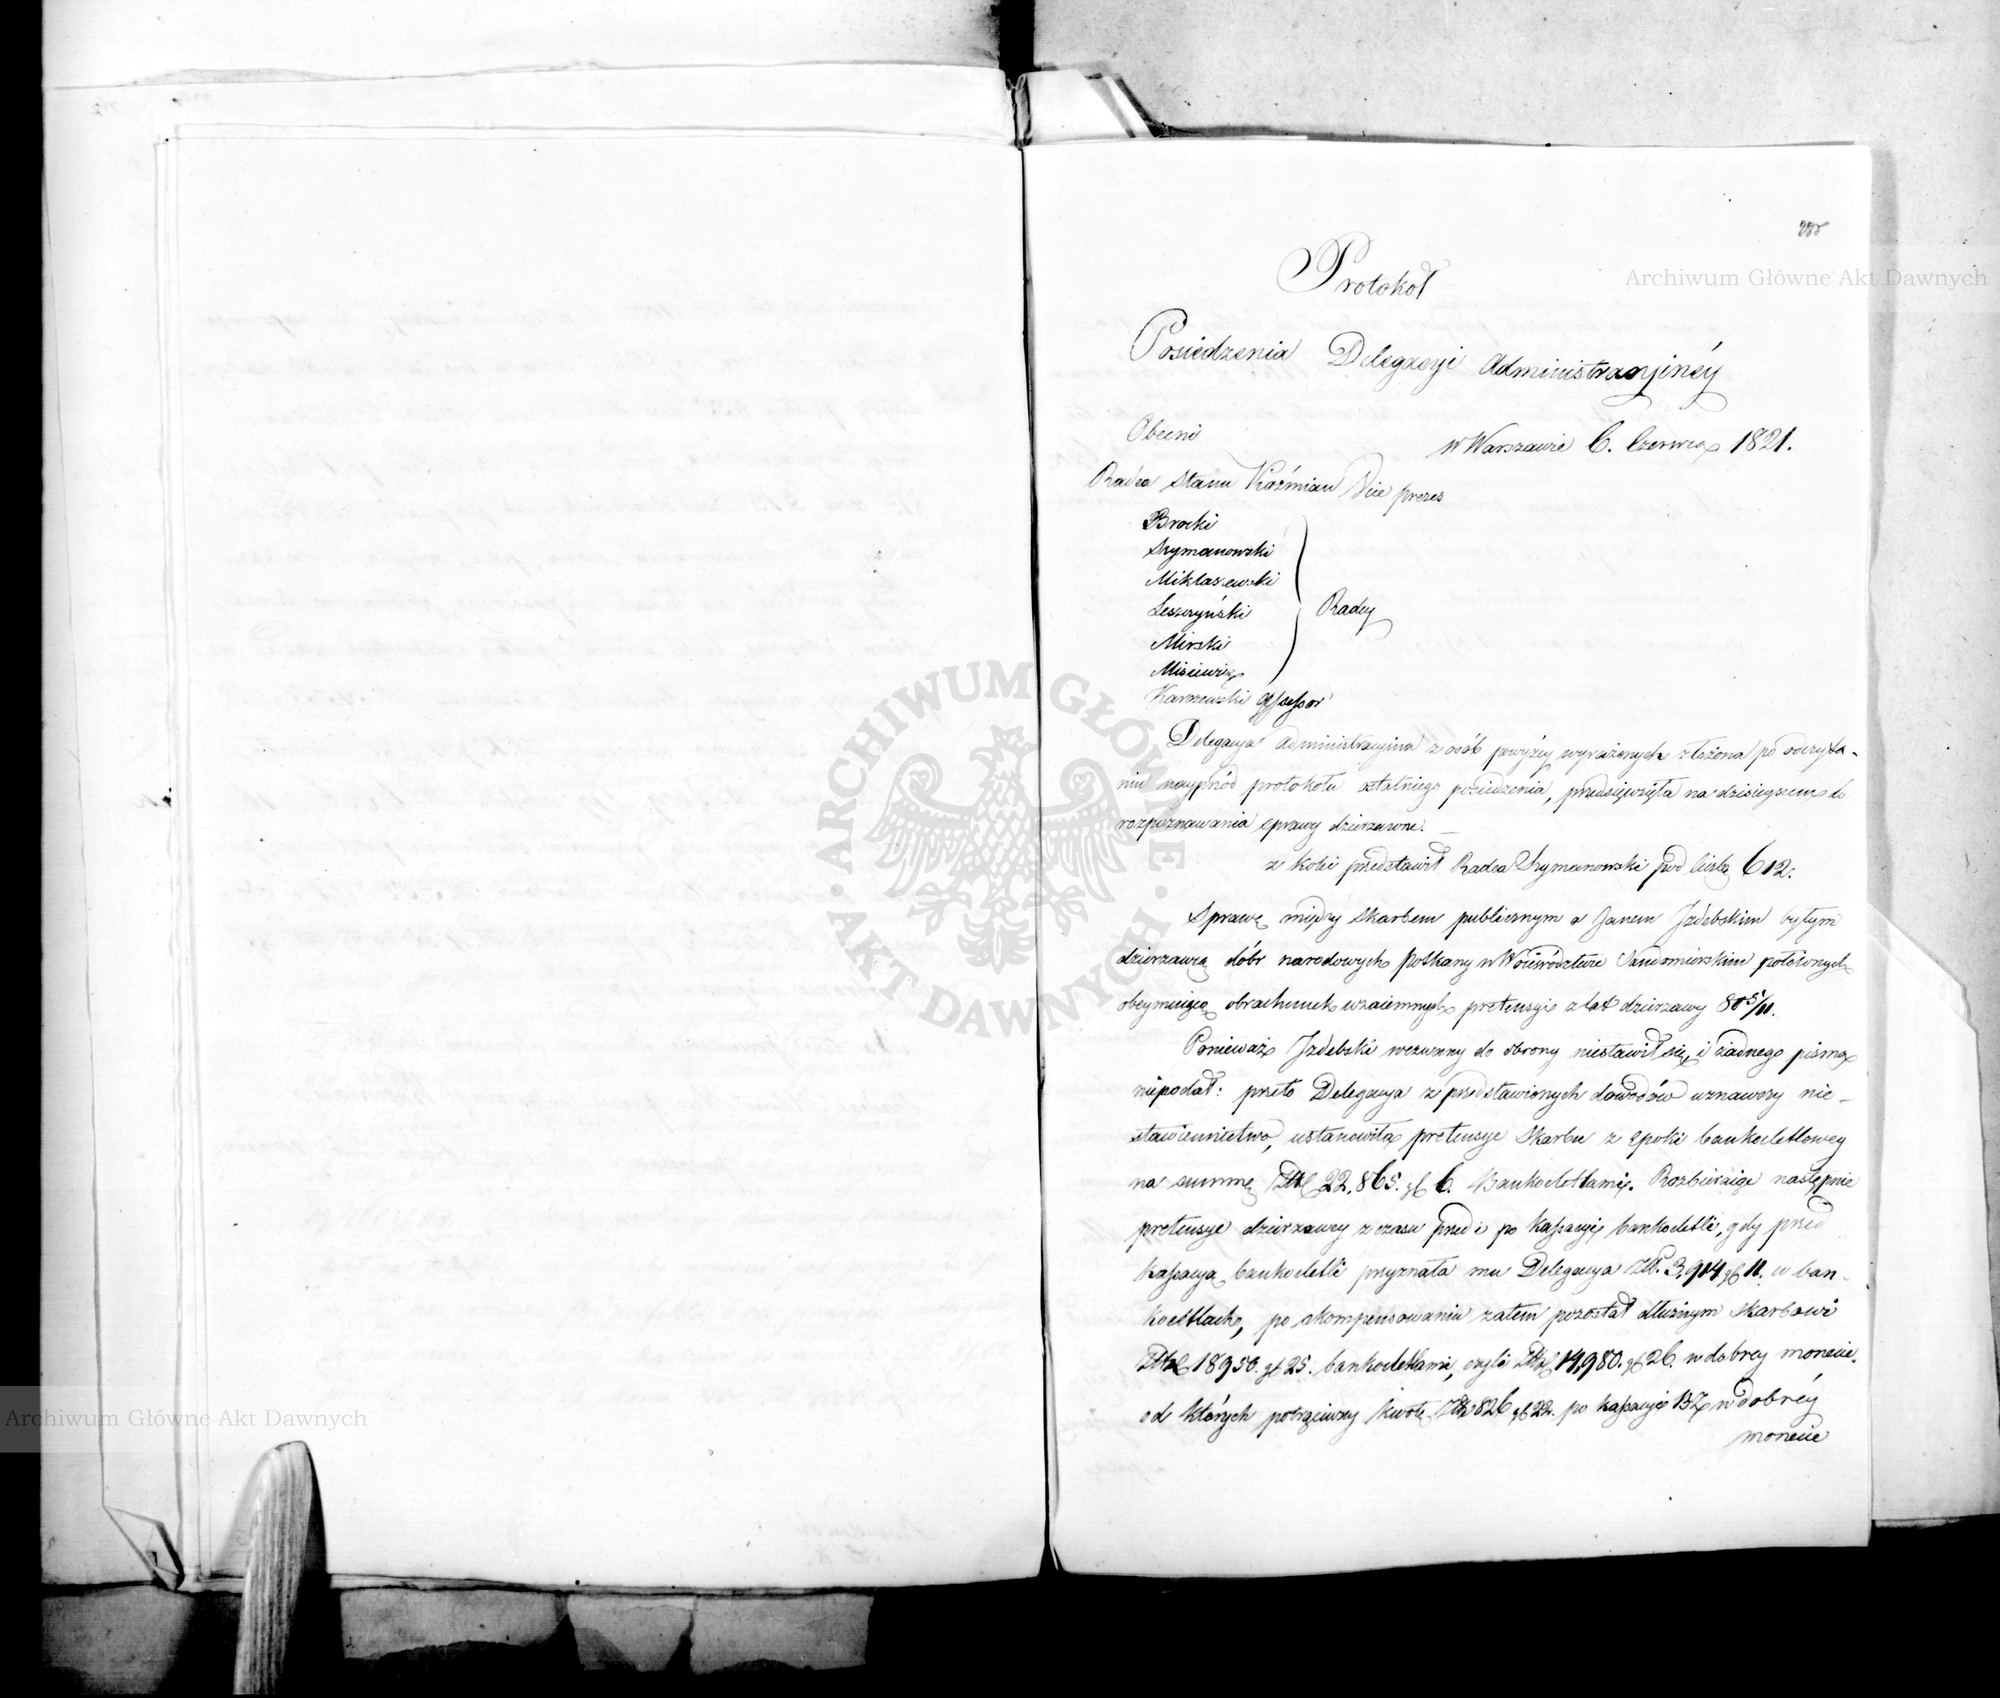 Protokół
Posiedzenia Delegacyi Administracyinéy
Obecni
w Warszawie 6. Czerwca 1821.
Radca Stanu Koźmian Vice prezes
Brocki
Szymanowski
Mikłaszewski
Leszczyński
Mirski
Misiewicz
Radcy
Karzewski Assessor
Delegacya Administracyina z osób powyżéy wyrażonych złożona po odczyta-
niu nayprzód protokołu ostatniego posiedzenia, przedsięwzięła na dzisieyszem do
rozpoznawania sprawy dzierzawne.
z kolei przedstawił Radca Szymanowski pod liczbą 612:
Sprawę między Skarbem publicznym a Janem Jzdebskim byłym
dzierzawcą dóbr narodowych Połkany w Woiewództwie Sandomierskim położonych
obeymuiącą obrachunek wzaiemnych pretensyi z lat dzierzawy 80 5/11.
Ponieważ Jzdebski wezwany do obrony niestawił się, i żadnego pisma
niepodał: przeto Delegacya z przedstawionych dowodów uznawszy nie-
stawiennictwo, ustanowiła pretensye Skarbu z epoki bankocetlowey
na summę Złp 22,865. gr 6. Bankocetlami. Rozbieraiąc następnie
pretensye dzierzawcy z czasu przed i po kassacyi bankocetli, gdy przed
kassacyą bankocetli przyznała mu Delegacya Złp. 3,914 gr 11. w ban-
kocetlach, po skompensowaniu zatem pozostał dłużnym Skarbowi
Złp 18950. gr 25. bankocetlami, czyli Złp 14,980. gr 26. w dobrey monecie.
od których potrąciwszy kwotę Złp 826 gr 22. po kassacyi BZ w dobréy
monecie
Archiwum Główne Akt Dawnych
Archiwum Główne Akt Dawnych
ARCHIWUM GŁÓWNE · AKT DAWNYCH ·